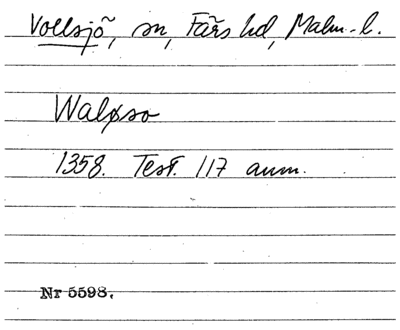 Vollsjö, sn, Färs hd, Malm. l.
Waløso
1358. Test. 117 anm.
Nr 5598.